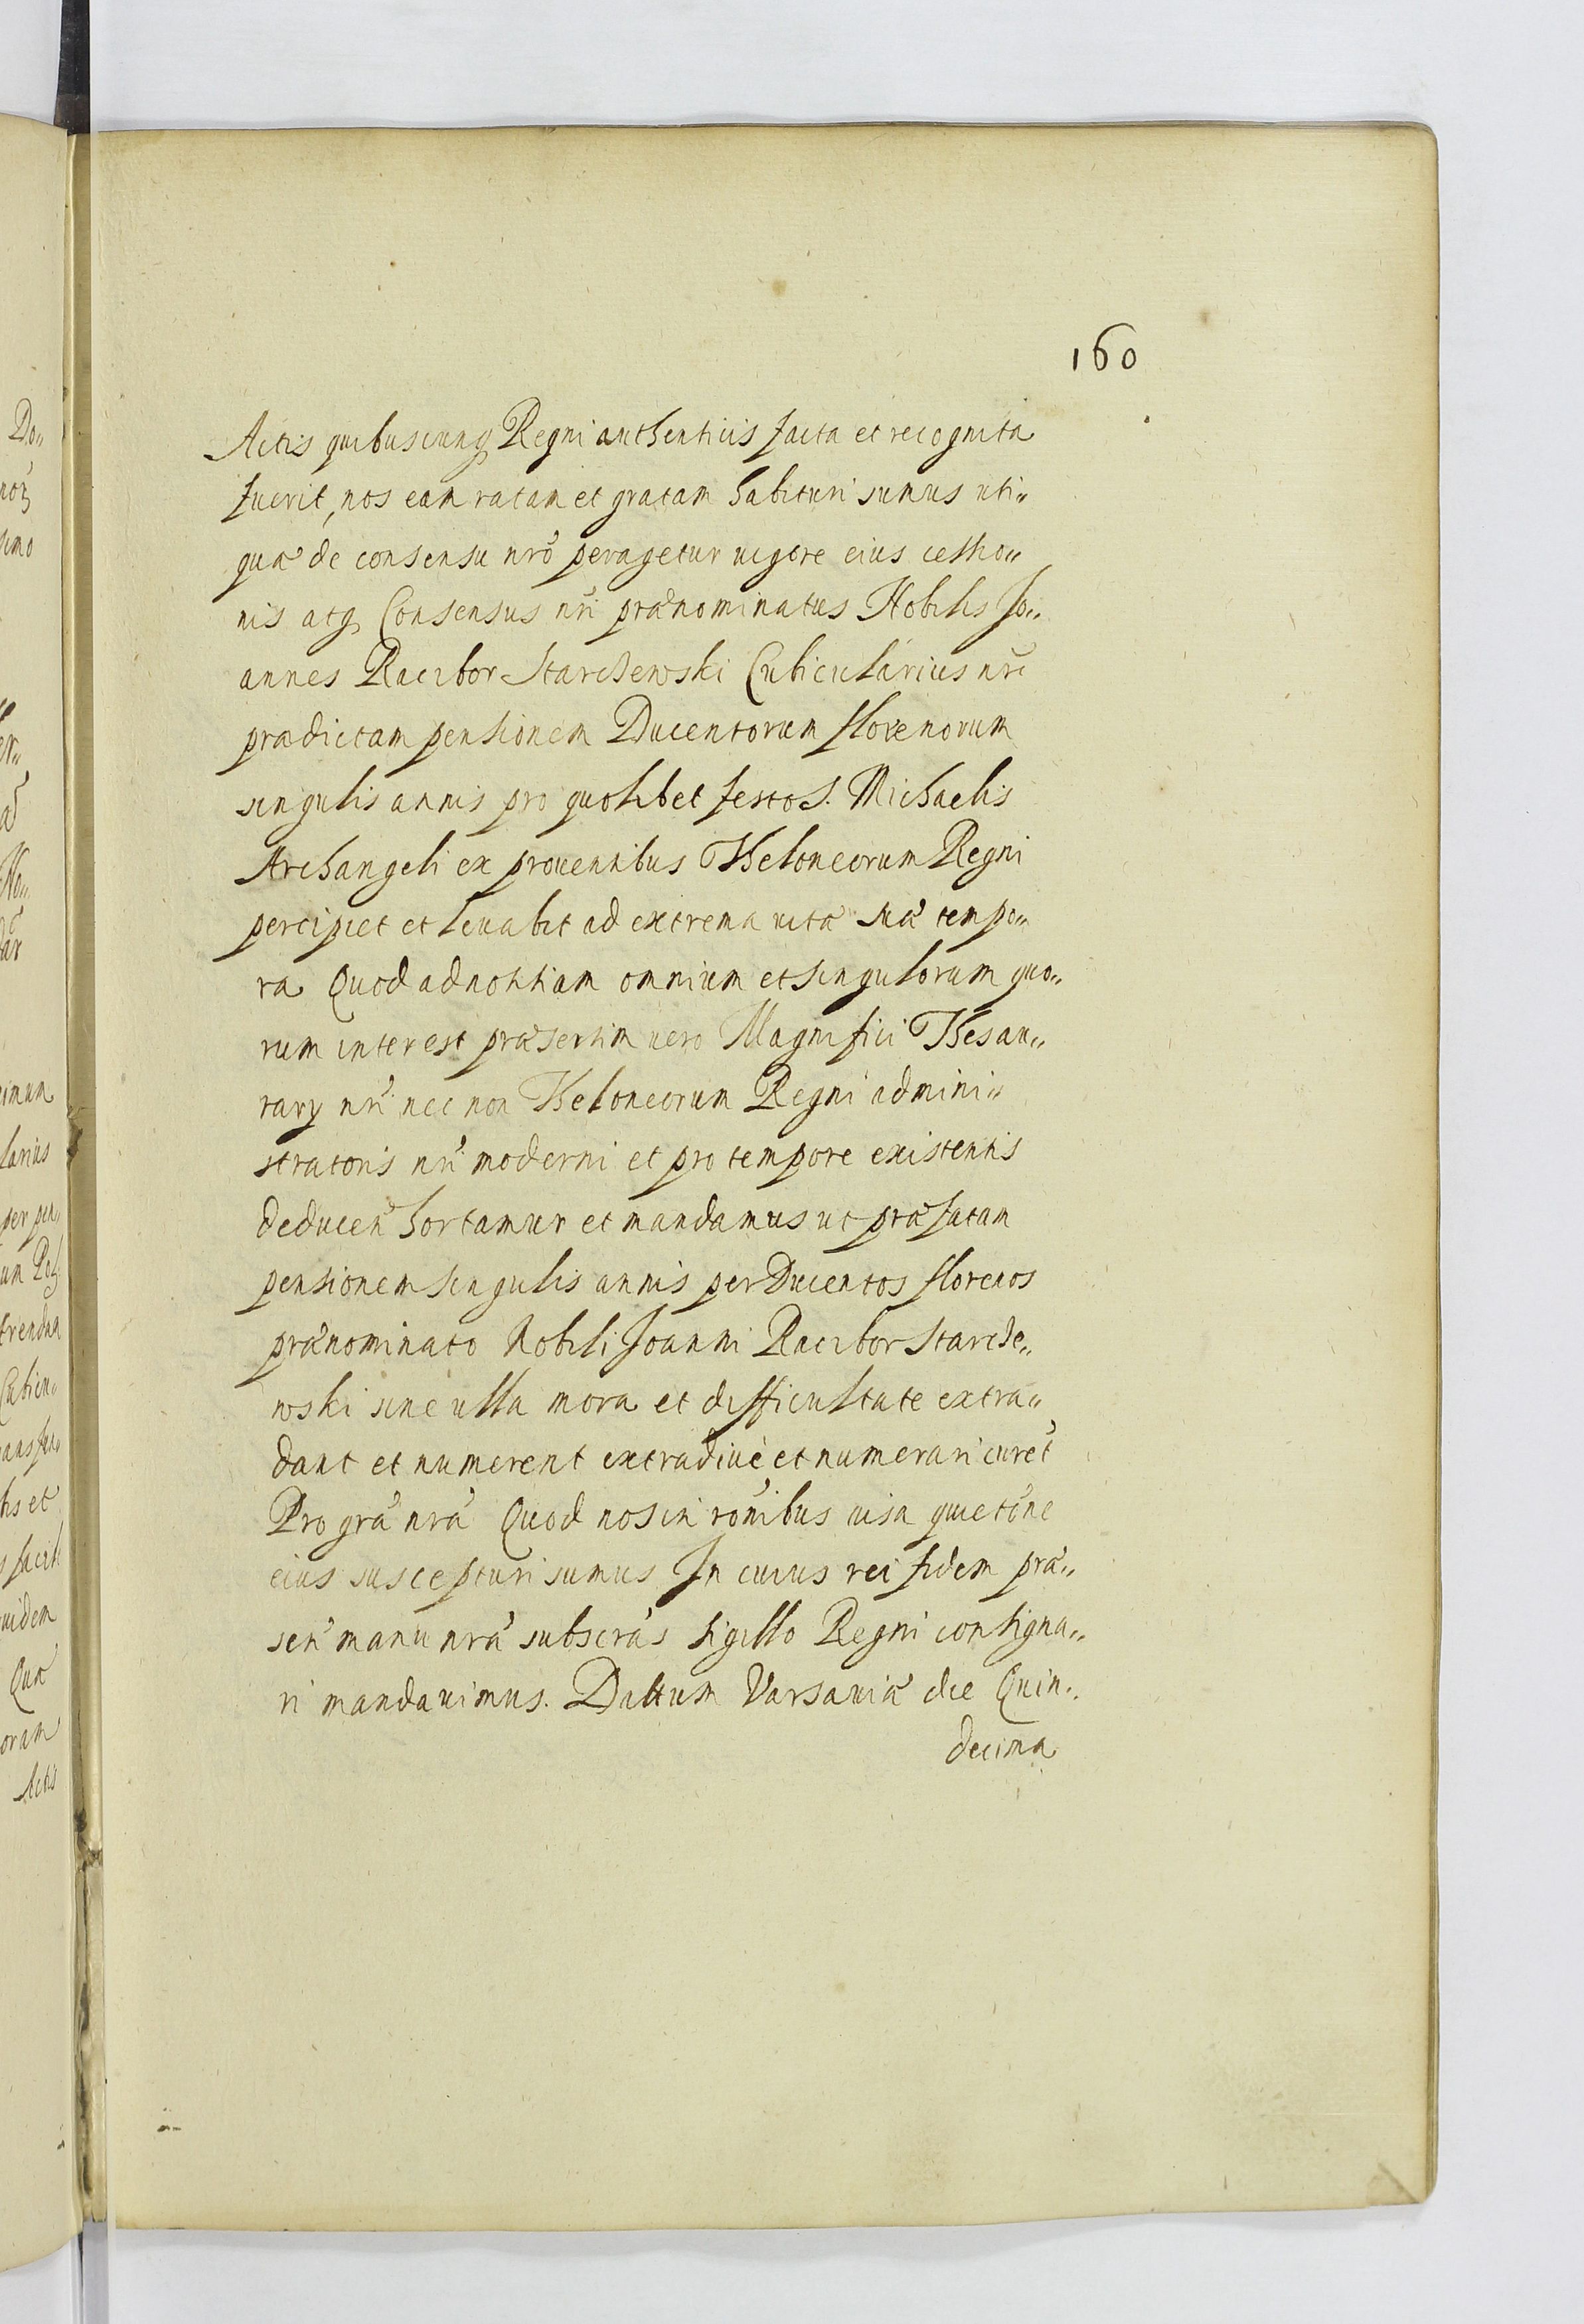 160
Actis quibuscunq Regni authenticis facta et recognita
fuerit, nos eam ratam et gratam habituri sumus uti„
qua de consensu nrō peragetur uigore eius cessio„
nis atq Consensus nrī praenominatus Nobilis Jo„
annes Racibor Starchewski Cubicularius nrī
praedictam pensionem Ducentorum florenorum
singulis annis pro quolibet festo S. Michaelis
Archangeli ex prouentibus Theloneorum Regni
percipiet et leuabit ad extrema uitae suae tempo„
ra Quod ad notitiam omnium et singulorum quo„
rum interest praesertim uero Magnifici Thesau„
rarij nrī nec non Theloneorum Regni admini„
stratoris nrī moderni et pro tempore existentis
deducen̄ hortamur et mandamus ut praefatam
pensionem singulis annis per Ducentos florenos
praenominato Nobili Joanni Racibor Starche„
wski sine ulla mora et difficultate extra„
dant et numerent extradiue et numerari curet
Pro grā nrā Quod nos in ronibus uisa quietone
eius suscepturi sumus In cuius rei fidem prae„
sen̄ manu nrā subscras sigillo Regni consigna„
ri mandauimus. Dattum Varsauiae die Quin„
decima
Do„
simo
larius
Cubicu„
tis et
Quae
oram
Actis